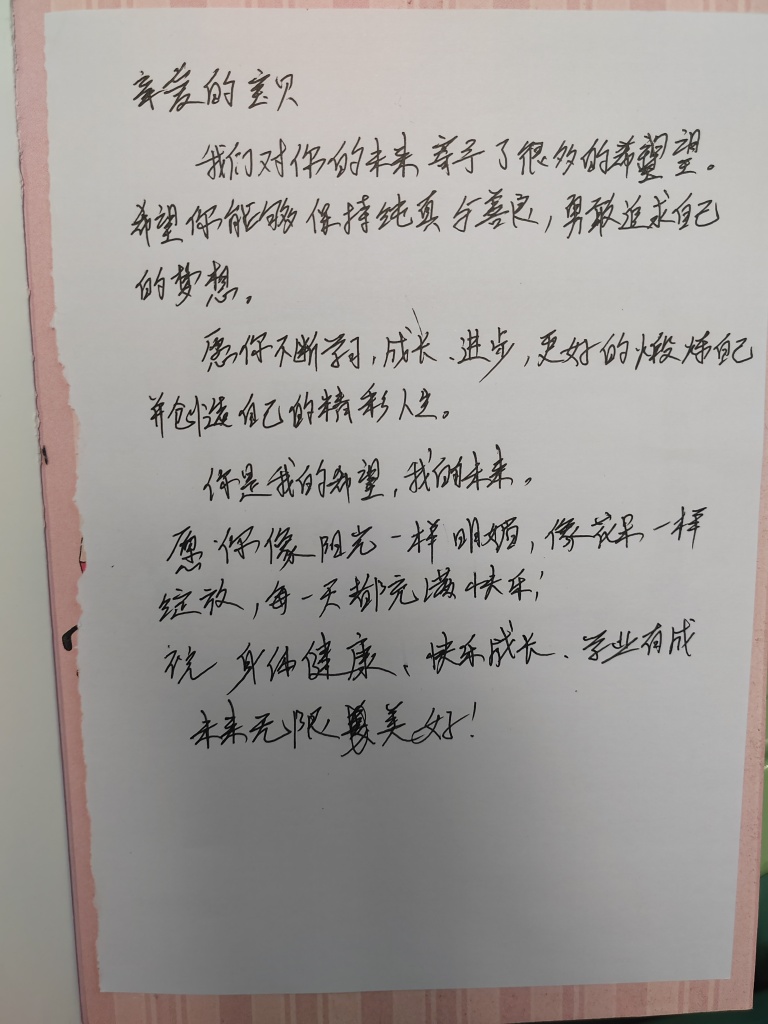 亲爱的宝贝
我们对你的未来寄予了很多的希望。
希望你能够保持纯真与善良，勇敢追求自己
的梦想。
愿你不断学习，成长、进步，更好的煅炼自己
并创造自己的精彩人生。
你是我的希望，我的未来。
愿你像阳光一样明媚，像花朵一样
绽放，每一天都充满快乐！
祝 身体健康、快乐成长、学业有成
未来无限美好！